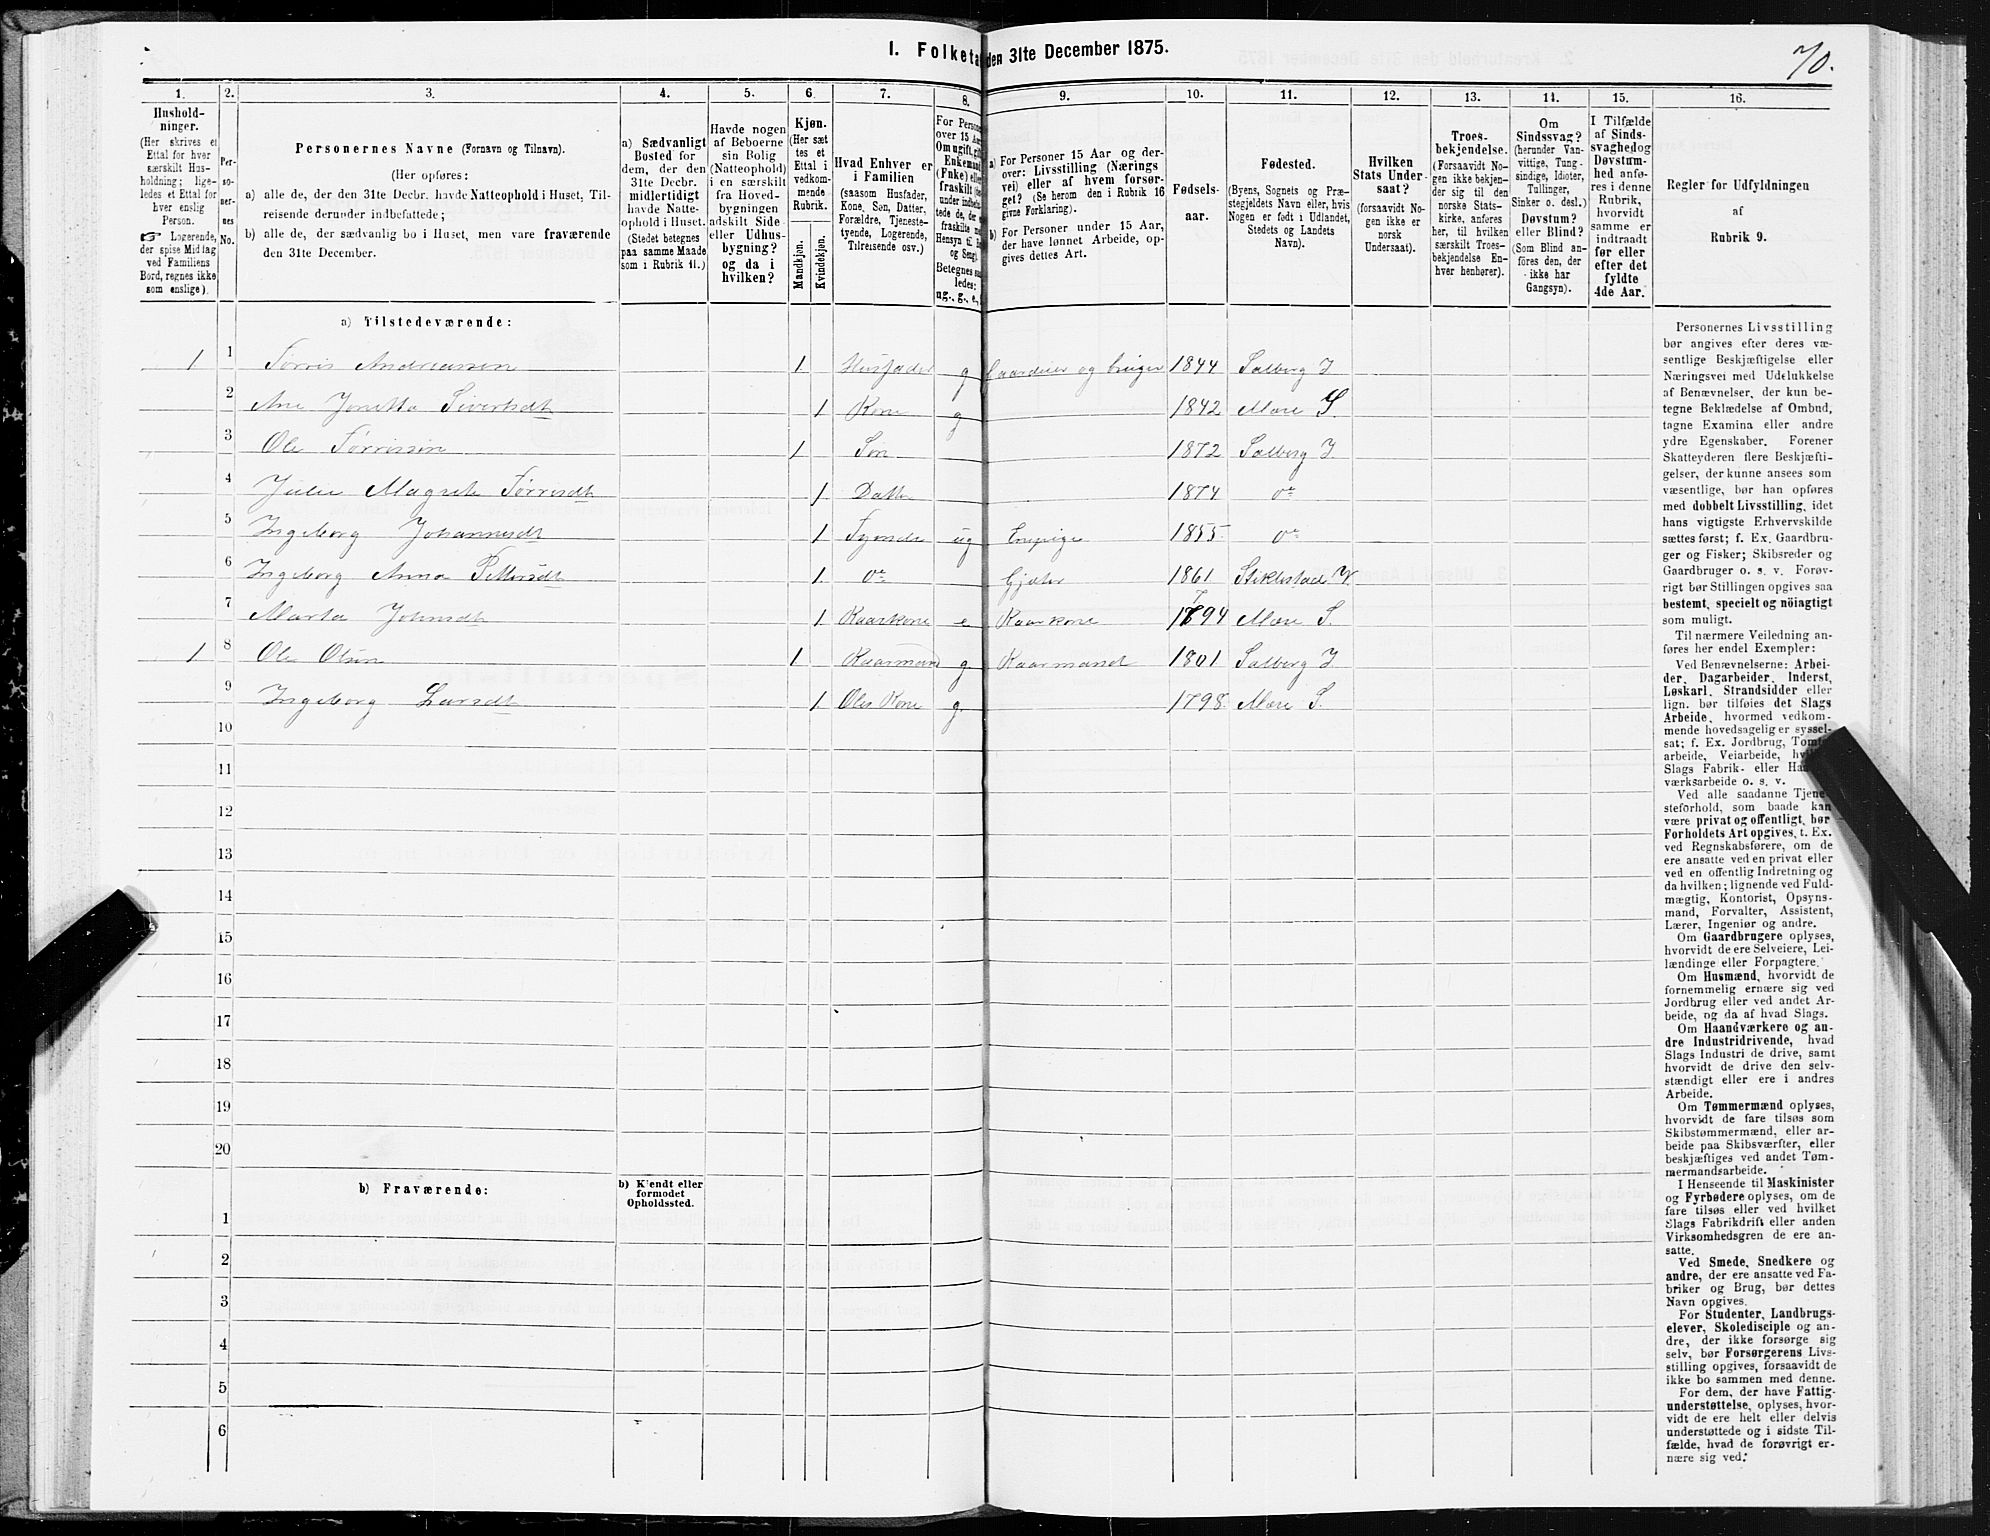 I. Folketa den 31te December 1875.
70.
1. 2. 3. 4. 5. 6. 7. 8. 9. 10. 11. 12. 13. 14. 15. 16.
Hushold-
ninger.
(Her skrives et
Ettal for hver
særskilt Hus-
holdning; lige-
ledes et Ettal for
hver enslig
Person.
☞ Logerende,
der spise Middag
ved Familiens
Bord, regnes ikke
som enslige).
Per-
so-
ner-
nes
No.
Personernes Navne (Fornavn og Tilnavn).
(Her opføres:
a) alle de, der den 31te Decbr. havde Natteophold i Huset, Til-
reisende derunder indbefattede;
b) alle de, der sædvanlig bo i Huset, men vare fraværende
den 31te December.
a) Sædvanligt
Bosted for
dem, der den
31te Decbr.
midlertidigt
havde Natte-
ophold i Huset.
(Stedet betegnes
paa samme Maade
som i Rubrik 11.)
Havde nogen
af Beboerne
sin Bolig
(Natteophold)
i en særskilt
fra Hoved-
bygningen
adskilt Side
eller Udhus-
bygning?
og da i
hvilken?
Kjøn.
(Her sæt
tes et
Ettal i
vedkom-
mende
Rubrik.
Mandkjøn.
Kvindekjøn.
Hvad Enhver er
i Familien
(saasom Husfader,
Kone, Søn, Datter,
Forældre, Tjeneste-
tyende, Logerende,
Tilreisende osv.)
For Persone
over 15 Aar
Om ugift, gift
Enkemand
(Enke) eller
fraskilt
under indbefat-
tede de, der
fraskilte
Hensyn til
og Seng).
Betegnes saa-
ledes:
ug., g., e.,
a) For Personer 15 Aar og der-
over: Livsstilling (Nærings
vei) eller af hvem forsør-
get? (Se herom den i Rubrik 16
givne Forklaring).
b) For Personer under 15 Aar,
der have lønnet Arbeide, op-
gives dettes Art.
Fødsels-
aar.
Fødested.
(Byens, Sognets og Præ-
stegjeldets Navn eller, hvis
Nogen er født i Udlandet,
Stedets og Landets
Navn).
Hvilken
Stats Under-
saat?
(forsaavidt No-
gen ikke er
norsk
Undersaat).
Troes-
bekjendelse.
(Forsaavidt No-
gen ikke bekjen-
der sig til den
norske Stats-
kirke, anføres
her, til hvilken
særskilt Troes-
bekjendelse En-
hver henhører).
Om
Sindssvag?
(herunder Van-
vittige, Tung-
sindige, Idioter,
Tullinger,
Sinker o. desl.)
Døvstum?
eller Blind?
(Som Blind an-
føres den, der
ikke har
Gangsyn).
I Tilfælde
af Sinds-
svaghed og
Døvstum-
hed anfø-
res i denne
Rubrik,
hvorvidt
samme er
indtraadt
før eller
efter det
fyldte
4de Aar.
Regler for Udfyldningen
af
Rubrik 9.
a) Tilstedeværende:
1 1 Tørris Andreassen 1 Husfader g Gaardeier og bruger 1844 Salberg I
2 Ane Jonetta Sivertsdt 1 Kone g 1842 Mære S.
3 Ole Tørrissen 1 Søn 1872 Salberg I.
4 Julie Magrete Tørrisdt 1 Datter 1874 do
5 Ingeborg Johannesdt 1 Tyende ug 1855 do
6 Ingeborg Anna Pettersdt 1 do Gjæter 1861 Stiklestad V.
7 Marta Johnsdt 1 Kaarkone e Kaarkone 1794 Mære S.
1 8 Ole Olsen 1 Kaarmand g Kaarmand 1801 Salberg I.
9 Ingeborg Larsdt 1 Oles Kone g. 1798. Mære S.
10
11
12
13
14
15
16
17
18
19
20
b) Fraværende:
b) Kjendt eller
formodet
Opholdssted.
1
2
3
4
5
6
Personernes Livsstilling
bør angives efter deres væ-
sentlige Beskjæftigelse eller
Næringsvei med Udelukkelse
af Benævnelser, der kun be-
tegne Beklædelse af Ombud,
tagne Examina eller andre
ydre Egenskaber. Forener
Skatteyderen flere Beskjæfti-
gelser, der kunne ansees som
væsentlige, bør han opføres
med dobbelt Livsstilling, idet
hans vigtigste Erhvervskilde
sættes først; f. Ex. Gaardbru-
ger og Fisker; Skibsreder og
Gaardbruger o. s. v. Forøv-
rigt bør Stillingen opgives saa
bestemt, specielt og nöiagtigt
som muligt.
Til nærmere Veiledning an-
føres her endel Exempler:
Ved Benævnelserne: Arbei-
der, Dagarbeider, Inderst,
Løskarl, Strandsidder eller
lign. bør tilføies det Slags
Arbeide, hvormed vedkom-
mende hovedsagelig er syssel-
sat; f. Ex. Jordbrug, Tomte-
arbeide, Veiarbeide, hvilket
Slags Fabrik- eller Haand-
værksarbeide o. s. v.
Ved alle saadanne Tjene-
steforhold, som baade kan
være privat og offentligt, bør
Forholdets Art opgives, t. Ex.
ved Regnskabsførere, om de
ere ansatte ved en privat eller
ved en offentlig Indretning og
da hvilken; lignende ved Fuld-
mægtig, Kontorist, Opsyns-
mand, Forvalter, Assistent,
Lærer, Ingeniør og andre.
Om Gaardbrugere oplyses,
hvorvidt de ere Selveiere, Lei-
lændinge eller Forpagtere.
Om Husmænd, hvorvidt de
fornemmelig ernære sig ved
Jordbrug eller ved andet Ar-
beide, og da af hvad Slags.
Om Haandværkere og an-
dre Industridrivende, hvad
Slags Industri de drive, samt
hvorvidt de drive den selv-
stændigt eller ere i andres
Arbeide.
Om Tømmermænd oplyses,
hvorvidt de fare tilsøs som
Skibstømmermænd, eller ar-
beide paa Skibsværfter, eller
beskjæftiges ved andet Tøm-
mermandsarbeide.
I Henseende til Maskinister
og Fyrbødere oplyses, om de
fare tilsøs eller ved hvilket
Slags Fabrikdrift eller anden
Virksomhedsgren de ere an-
satte.
Ved Smede, Snedkere og
andre, der ere ansatte ved Fa-
briker og Brug, bør dettes
Navn opgives.
For Studenter, Landbrugs-
elever, Skoledisciple og an-
dre, der ikke forsørge sig
selv, bør Forsørgerens Livs-
stilling opgives, forsaavidt de
ikke bo sammen med denne.
For dem, der have Fattig-
understøttelse, oplyses, hvor-
vidt de ere helt eller delvis
understøttede og i sidste Til-
fælde, hvad de forøvrigt er-
nære sig ved.